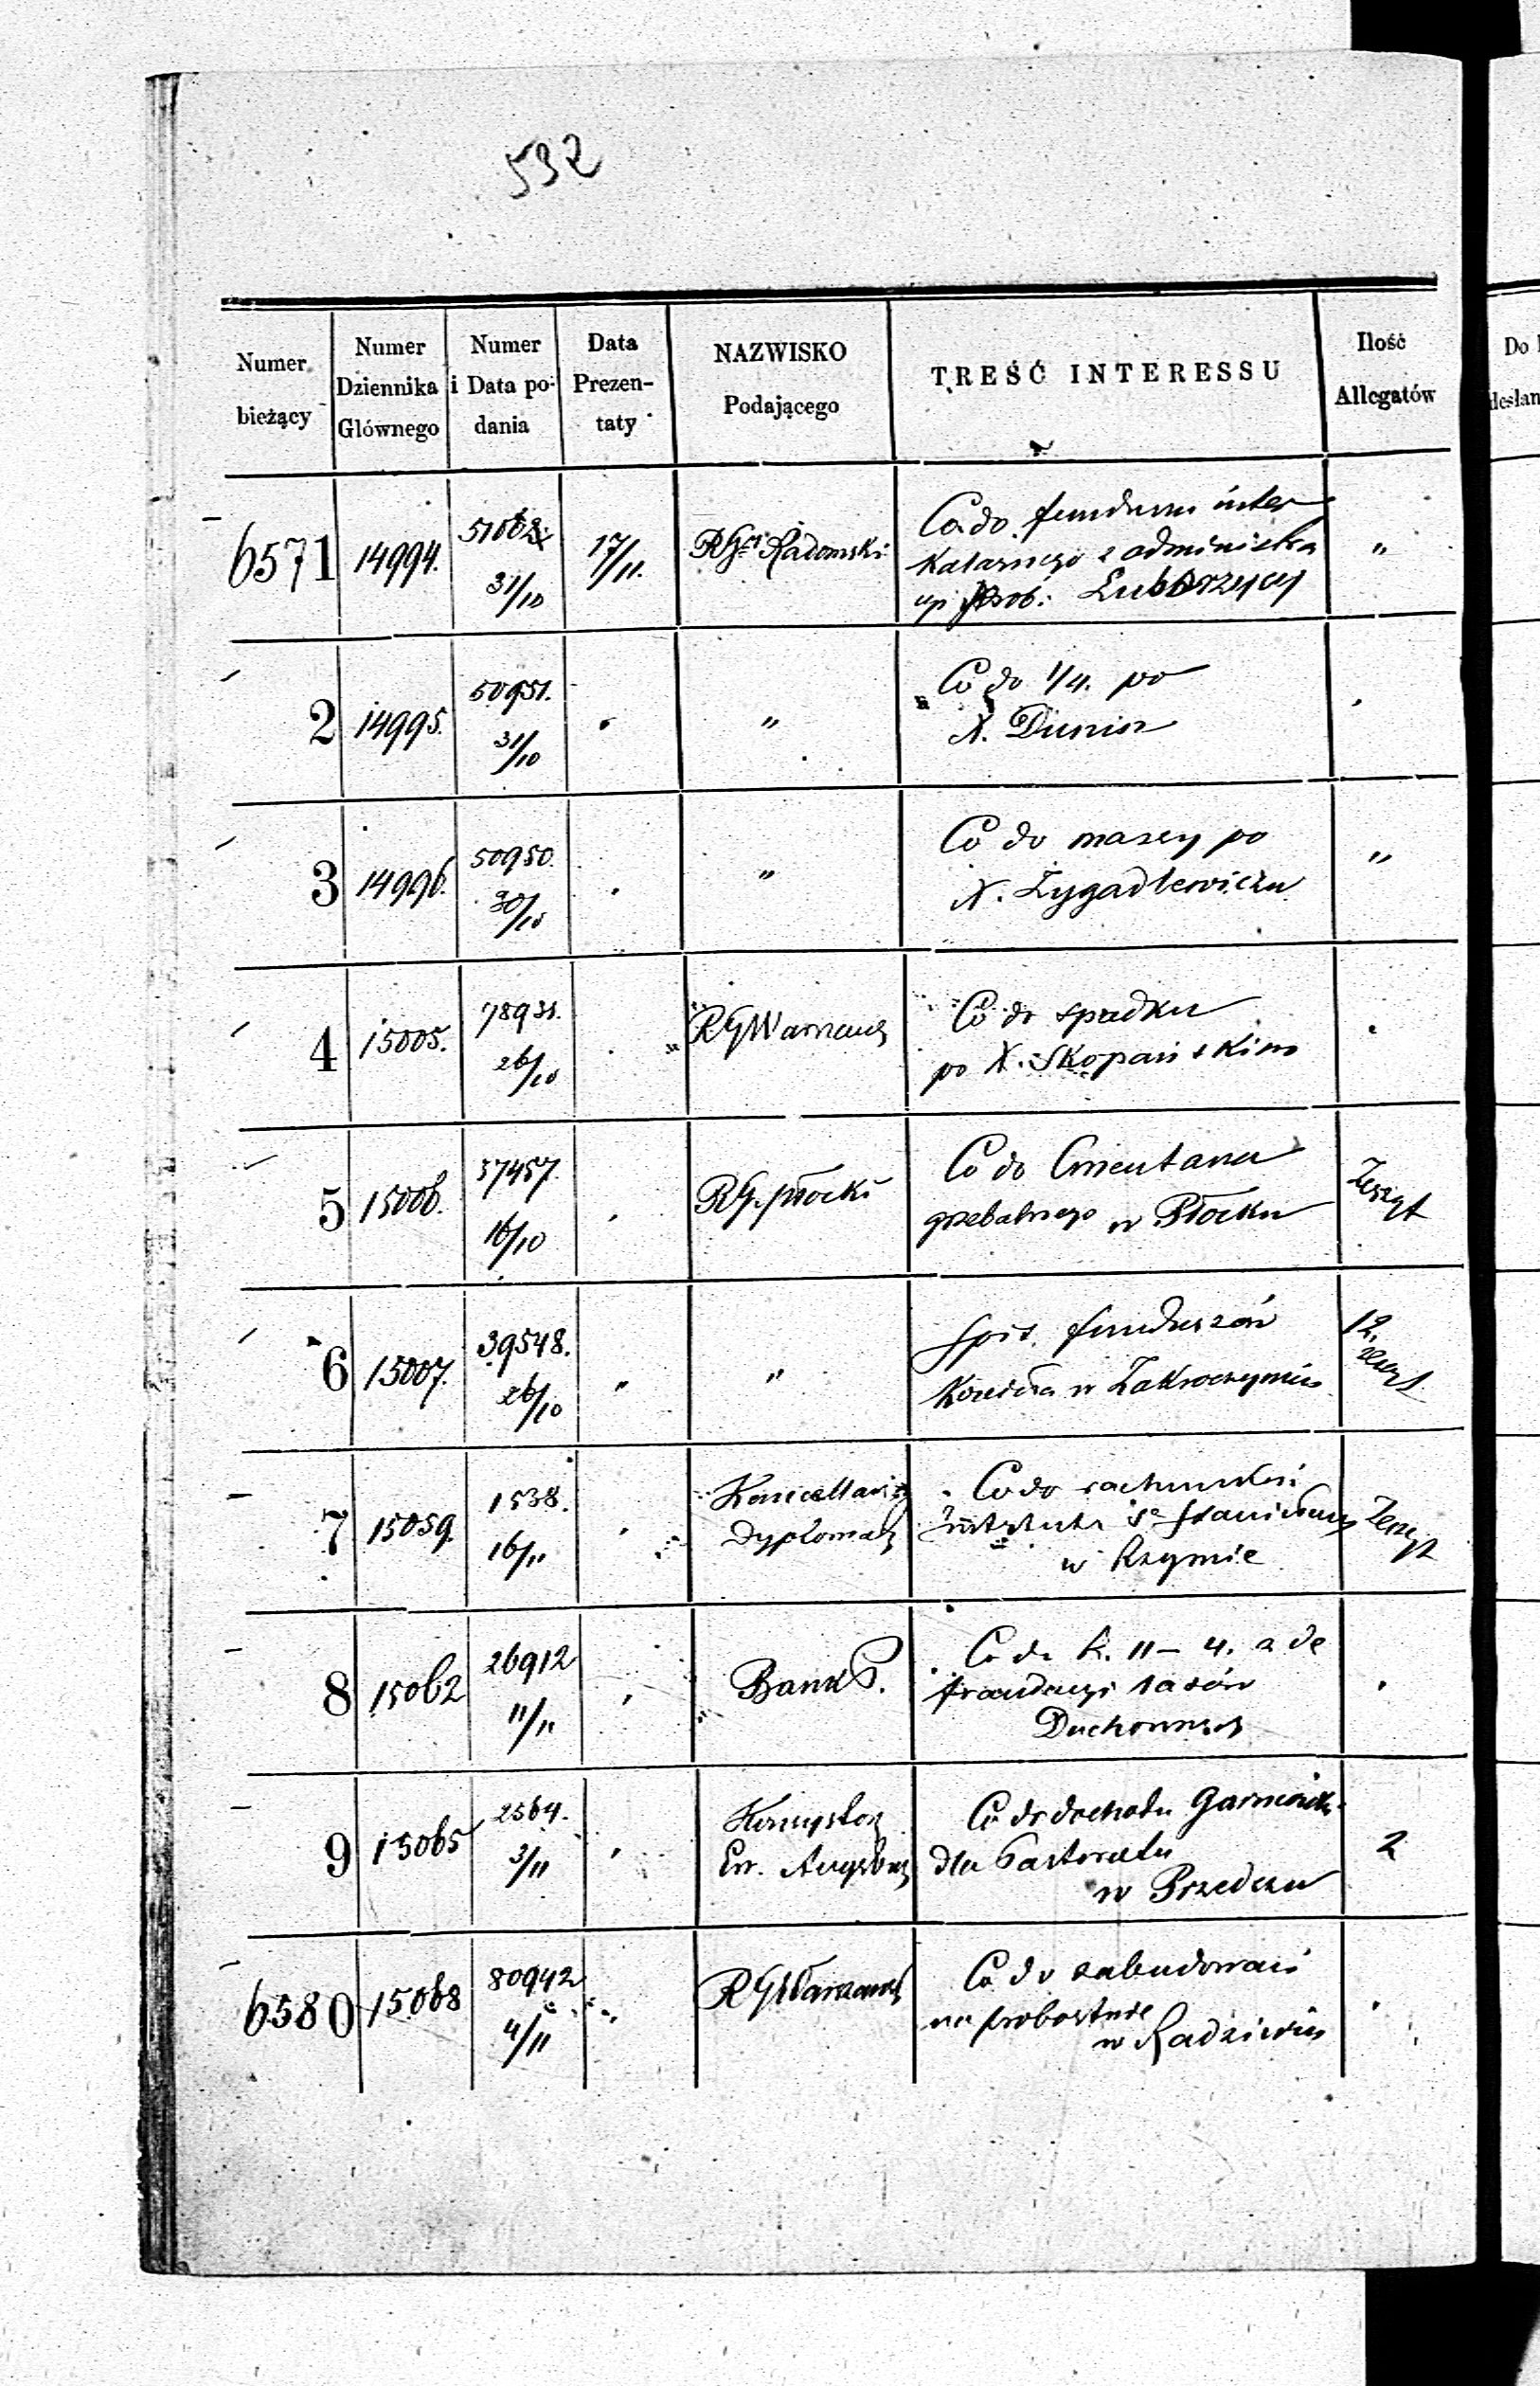 532
Numer bieżący | Numer Dziennika Głównego | Numer i Data podania | Data Prezentaty | NAZWISKO Podającego | TREŚĆ INTERESSU | Ilość Allegatów
6571 | 14994. | 31/10 | 17/11. | Radomski | Co do funduszu inter
kalarnego z administra
cyi prob:
2 | 14995. | 50951. 31/10 | " | Co do 1/4. po
X.
3 | 14996. | 50950. 30/10 | " | Co do massy po | "
X. Zygadlewiczu
4 | 15005. | 78931. 26/10 | RG Warszaws | Co do spadku
po X. Skopańskim
5 | 15006. | 37457. 16/10 | RG. płocki | Co do Cmentarza | Zeszyt
grzebalnego w Płocku
6 | 15007. | 39548. 26/10 | " | " | Spis. funduszów | 12. zeszyt
Kościoła w Zakroczymiu
7 | 15059. | 1538. 16/11 | Kancellaria | Co do rachunków | Zeszyt
Dyplomat | Instytutu Sº Stanisława
w Rzymie
8 | 15062 | 26912 11/11 | Bank P. | Co do
Duchownych
9 | 15065 | 2564. 3/11 | Konsystorz | Co do dochodu | 2
Ew. Augsburs | dla Pastoratu
w Przedczu
6580 | 15068 | 80942 4/11 | RG Warszaws | Co do zabudowań
na probostwie
w Radziwiu
Do